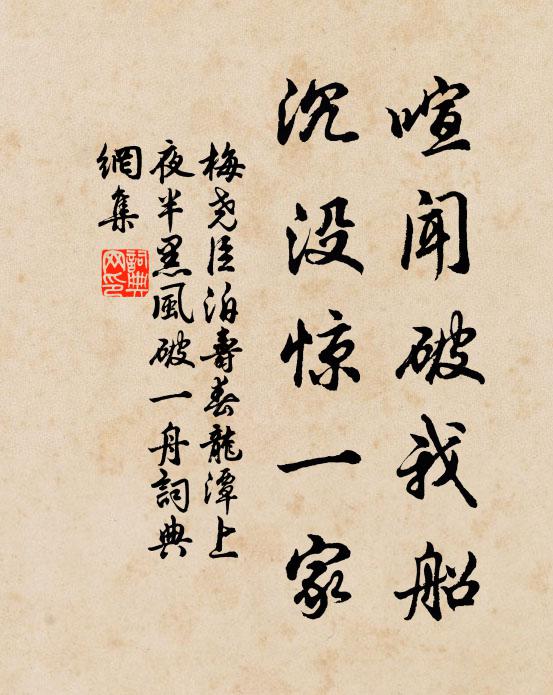 喧闻破我船
沉没惊一家
梅尧臣泊寿春龍潭上
夜半黑風破一舟詞典
網集
詞典网印